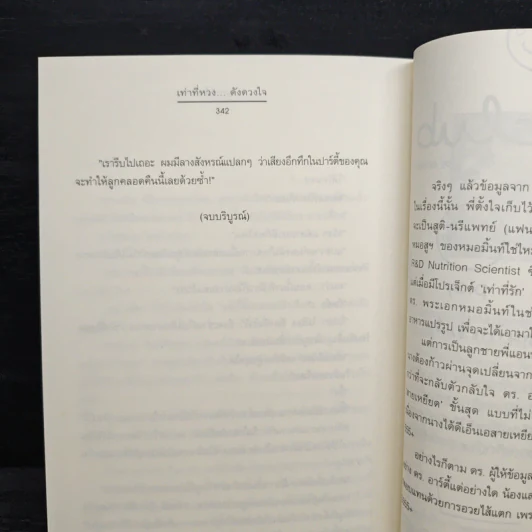 เท่าที่หวง.... ดังดวงใจ
342
"เรารีบไปเถอะ ผมมีลางสังหรณ์แปลกๆ ว่าเสียงอึกทึกในปาร์ตี้ของคุณ
จะทำให้ลูกคลอดคืนนี้เลยด้วยซ้ำ!"
(จบบริบูรณ์)
จริงๆ แล้วข้อมูลจาก
ในเรื่องนี้นั้น พี่ตั้งใจเก็บไว้
จะเป็นสูติ-นรีแพทย์ (แฟน
หมอสูฯ ของหมอมิ้นท์ใช่ไหม
R&D Nutrition Scientist
แต่เมื่อมีโปรเจ็กต์ 'เท่าที่รัก'
ดร. พระเอกหมอมิ้นท์ในช่
อาหารแปรรูป เพื่อจะได้เอามาใ
แต่การเป็นลูกชายพี่แอน
างต้องก้าวผ่านจุดเปลี่ยนจาก
ว่าที่จะกลับตัวกลับใจ ดร. อ
สายเหยียด' ขั้นสุด แบบที่ไม่
เนื่องจากนางได้ดีเอ็นเอสายเหยีย
อย่างไรก็ตาม ดร. ผู้ให้ข้อมูล
ดร. อาร์ตี้แต่อย่างใด น้องแล
แทนด้วยการอวยไส้แตก เพร